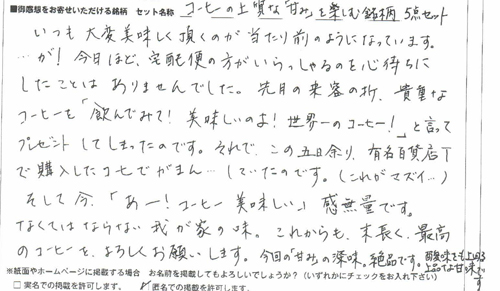 ■御感想をお寄せいただける銘柄 セット名称 コーヒーの上質な「甘み」を楽しむ銘柄5点セット
いつも大変美味しく頂くのが当たり前のようになっています。
…が！今日ほど、宅配便の方がいらっしゃるのを心待ちに
したことはありませんでした。先月の来客の折、貴重な
コーヒーを「飲んでみて！美味しいのよ！世界一のコーヒー！」と言って
プレゼントしてしまったのです。それで、この五日余り、有名百貨店T
で購入したコーヒーでがまん…していたのです。（これがマズイ…）
そして今、「あー！コーヒー美味しい」感無量です。
なくてはならない我が家の味。これからも、末長く、最高
のコーヒーを、よろしくお願いします。今回の「甘み」の深味、絶品です。酸味をも上回る
上品な甘味です
※紙面やホームページに掲載する場合 お名前を掲載してもよろしいでしょうか？（いずれかにチェックをお入れ下さい）
□実名での掲載を許可します。 ☑匿名での掲載を許可します。